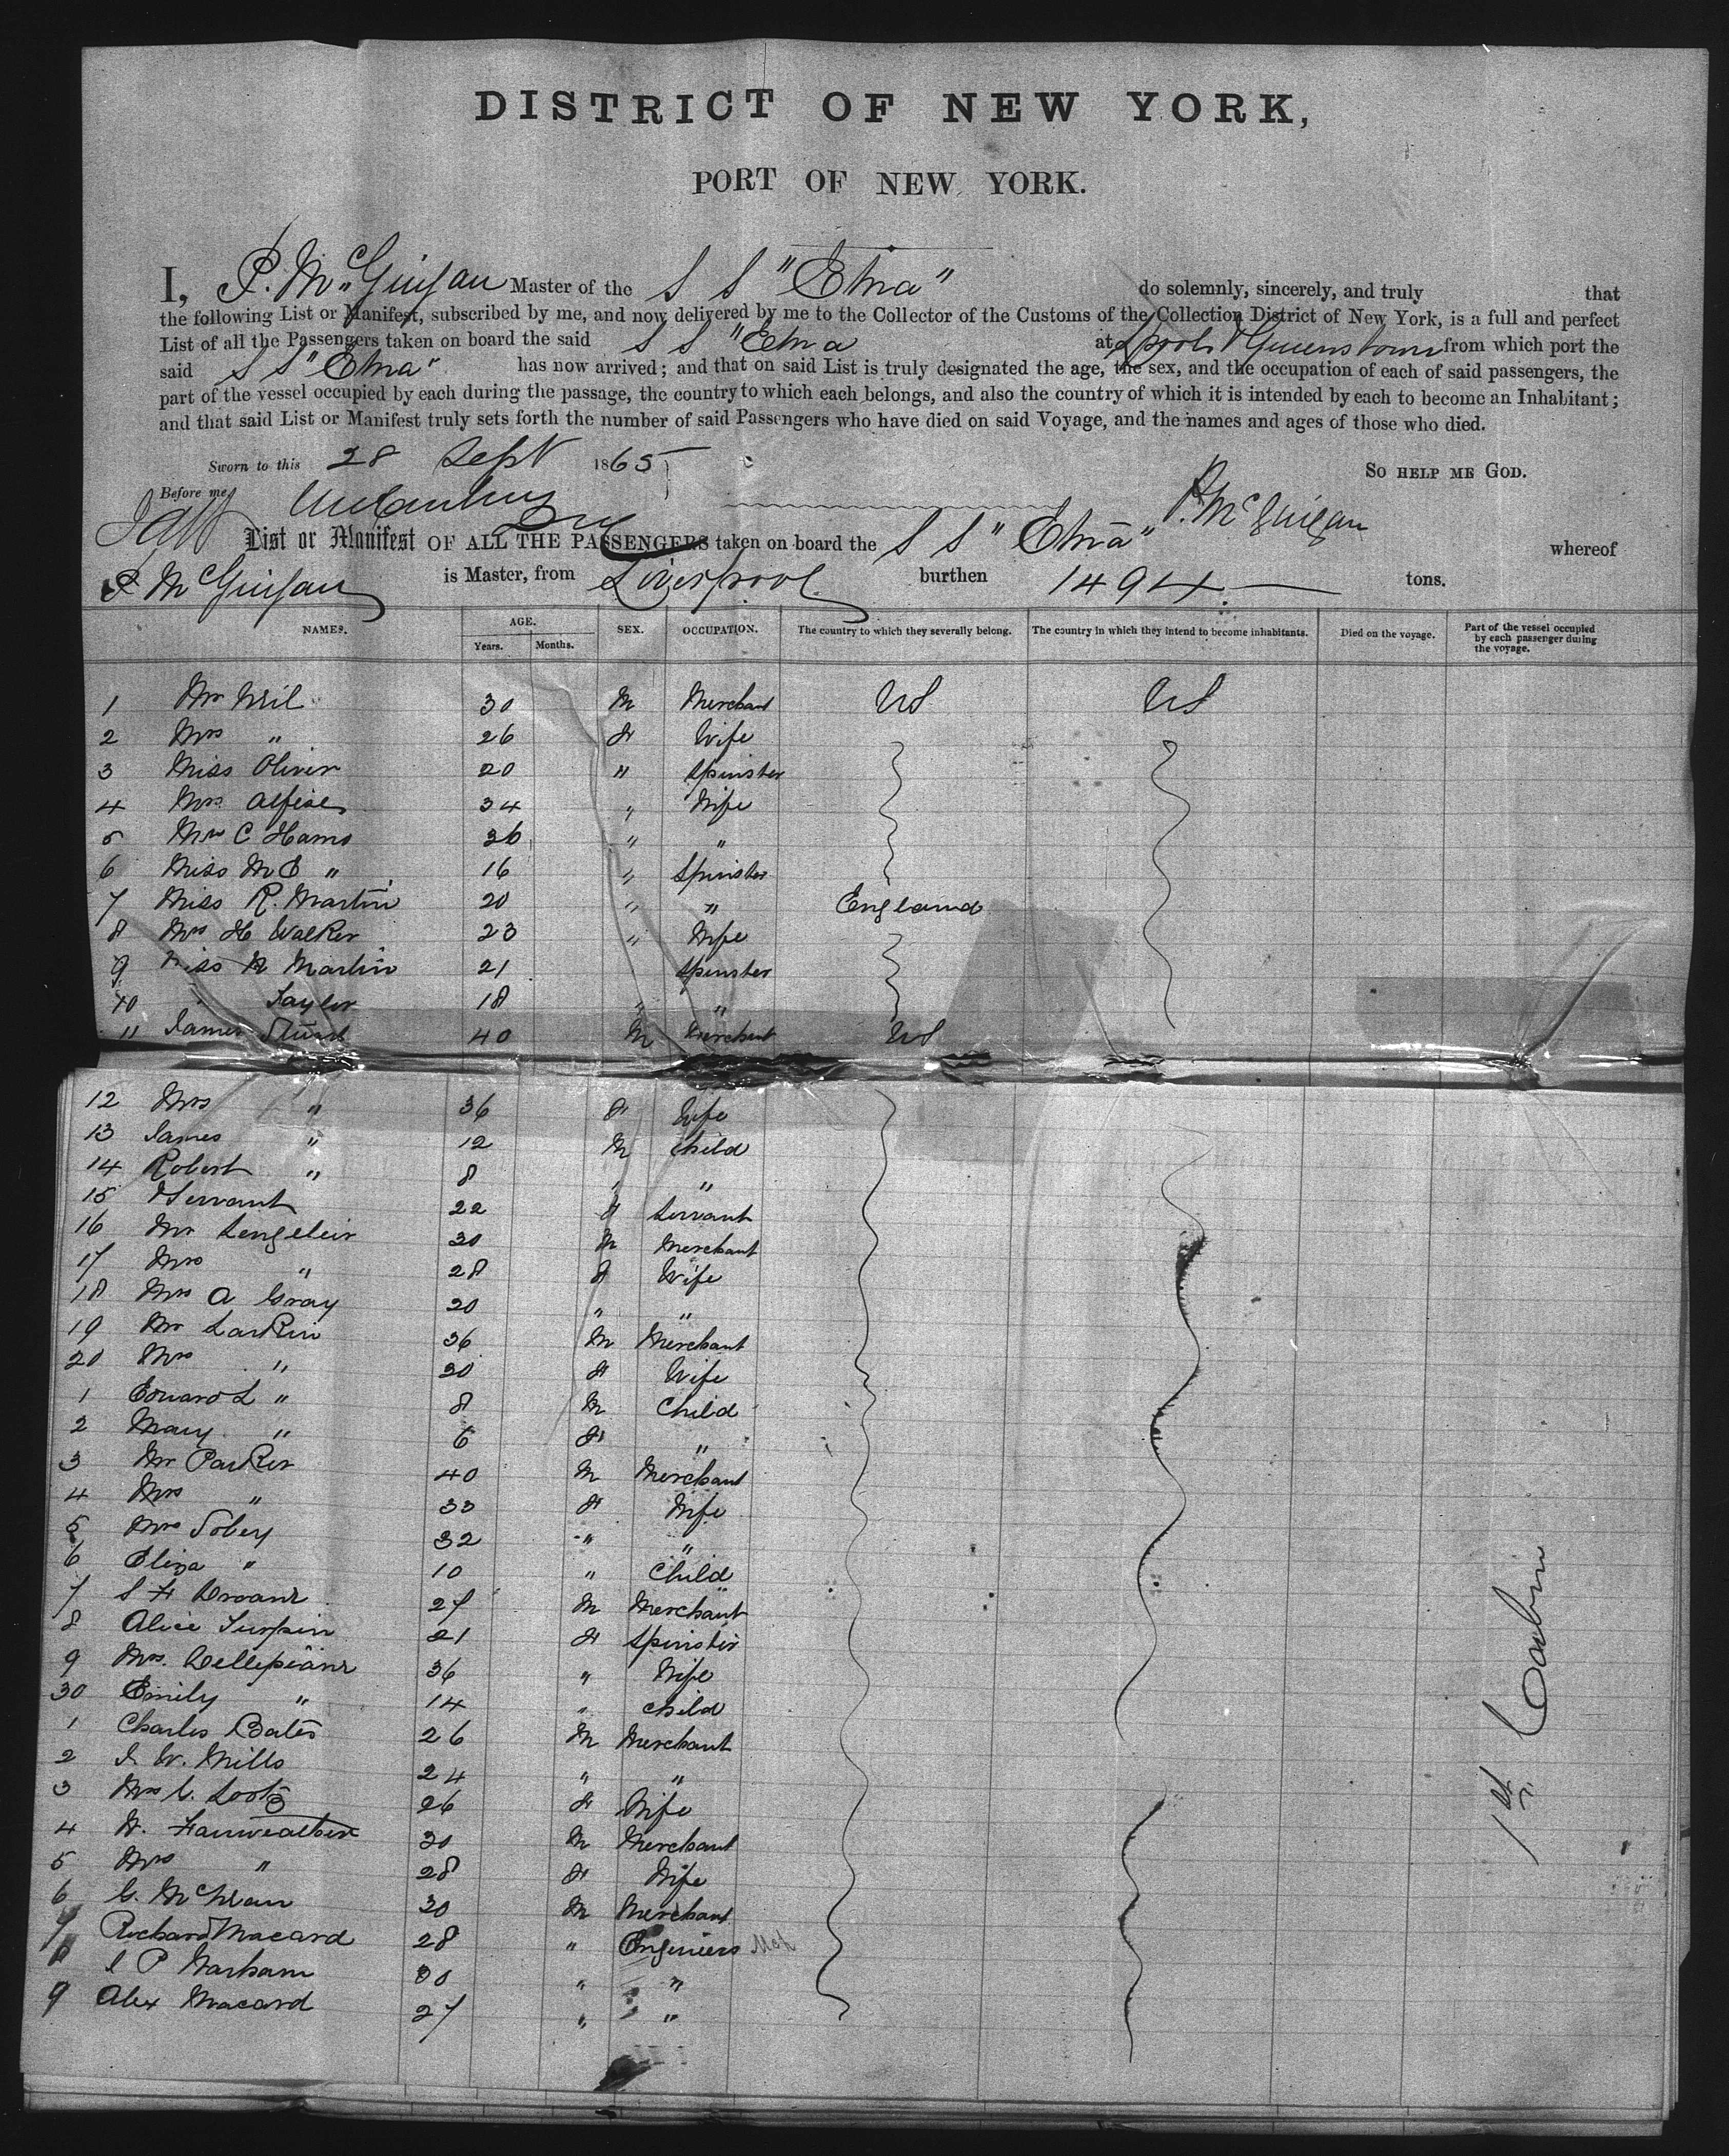 DISTRICT OF NEW YORK,
PORT OF NEW YORK.
I, P. McGuigan Master of the S S "Etna" do solemnly, sincerely, and truly that
the following List or Manifest, subscribed by me, and now delivered by me to the Collector of the Customs of the Collection District of New York, is a full and perfect
List of all the Passengers taken on board the said S S "Etna at Lpool & Queenstown from which port the
said S S "Etna" has now arrived; and that on said List is truly designated the age, the sex, and the occupation of each of said passengers, the
part of the vessel occupied by each during the passage, the country to which each belongs, and also the country of which it is intended by each to become an Inhabitant;
and that said List or Manifest truly sets forth the number of said Passengers who have died on said Voyage, and the names and ages of those who died.
Sworn to this 28 Sept 1865 SO HELP ME GOD.
Before me P. McGuigan
List or Manifest OF ALL THE PASSENGERS taken on board the S S "Etna" whereof
P McGuigan is Master, from Liverpool burthen 1494 tons.
NAMES. AGE. Years. Months. SEX. OCCUPATION. The country to which they severally belong. The country in which they intend to become inhabitants. Died on the voyage. Part of the vessel occupied by each passenger during the voyage.
1 Mr Weil 30 M Merchant US US
2 Mrs " 26 F Wife
3 Miss Oliver 20 " Spinster
4 Mrs 34 " Wife
5 Mrs C Harris 36 " "
6 Miss M E " 16 " Spinster
7 Miss R. Martin 20 " " England
8 Mrs H Walker 23 " Wife
9 Miss Martin 21 Spinster
10 " Taylor 18 " "
11 James 40 M Merchant US
12 Mrs " 36 F Wife
13 James " 12 M Child
14 Robert " 8 " "
15 & Servant 22 F Servant
16 Mr 30 M Merchant
17 Mrs " 28 F Wife
18 Mrs A Gray 20 " "
19 Mr Larkin 36 M Merchant
20 Mrs " 30 F Wife
1 Edward L " 8 M Child
2 Mary " 6 F "
3 Mr Parker 40 M Merchant
4 Mrs " 33 F Wife
5 Mrs Sobey 32 " "
6 Eliza " 10 " Child
7 S F 27 M Merchant
8 Alice Turpin 21 F Spinster
9 Mrs. Dellepiane 36 " Wife
30 Emily " 14 " Child
1 Charles Bates 26 M Merchant
2 J. W. Mills 24 " "
3 Mrs 26 F Wife
4 W. 30 M Merchant
5 Mrs " 28 F Wife
6 G. 30 M Merchant
7 Richard Macard 28 " Engineers
8 30 " "
9 Alex Macard 27 " "
1st Cabin